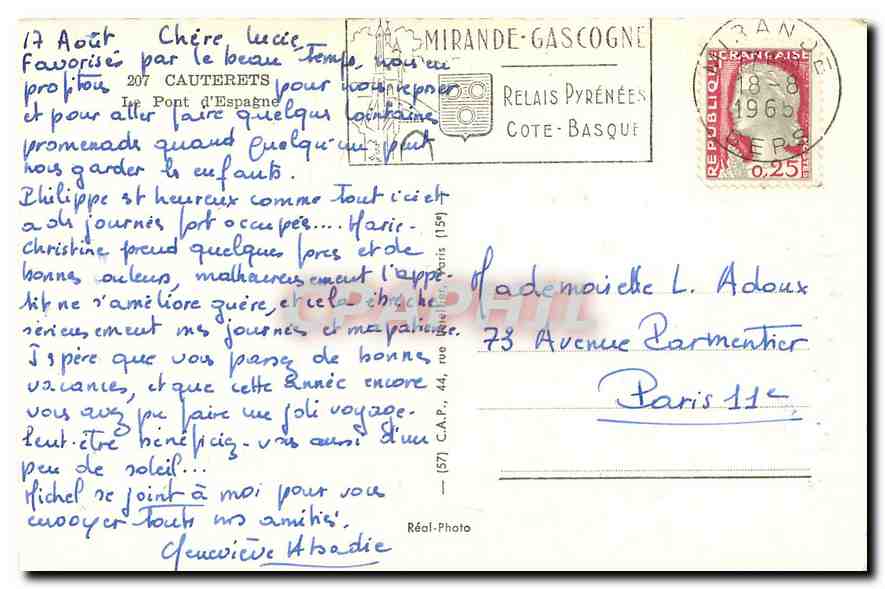 17 Août Chère Lucie,
Favorisés par le beau temps, nous en
profitons pour nous reposer
et pour aller faire quelques lointaines
promenades quand quelqu'un peut
nous garder les enfants.
Philippe est heureux comme tout ici et
a des journées fort occupées.... Marie-
Christine prend quelques forces et de
bonnes couleurs, malheureusement l'appé-
tit ne s'améliore guère, et cela ébrèche
sérieusement mes journées et ma patience.
J'espère que vous passez de bonnes
vacances, et que cette année encore
vous avez pu faire un joli voyage.
Peut-être bénéficiez-vous aussi d'un
peu de soleil...
Michel se joint à moi pour vous
envoyer toutes nos amitiés.
Geneviève Abadie
207 CAUTERETS
Le Pont d'Espagne
MIRANDE-GASCOGNE
RELAIS PYRÉNÉES
COTE-BASQUE
MIRANDE
18-8
GERS
REPUBLIQUE
FRANÇAISE
0,25
Mademoiselle L. Adoux
73 Avenue Parmentier
Paris 11e
(57) C.A.P., 44, rue Paris (15e)
Réal-Photo
CPAPHIL